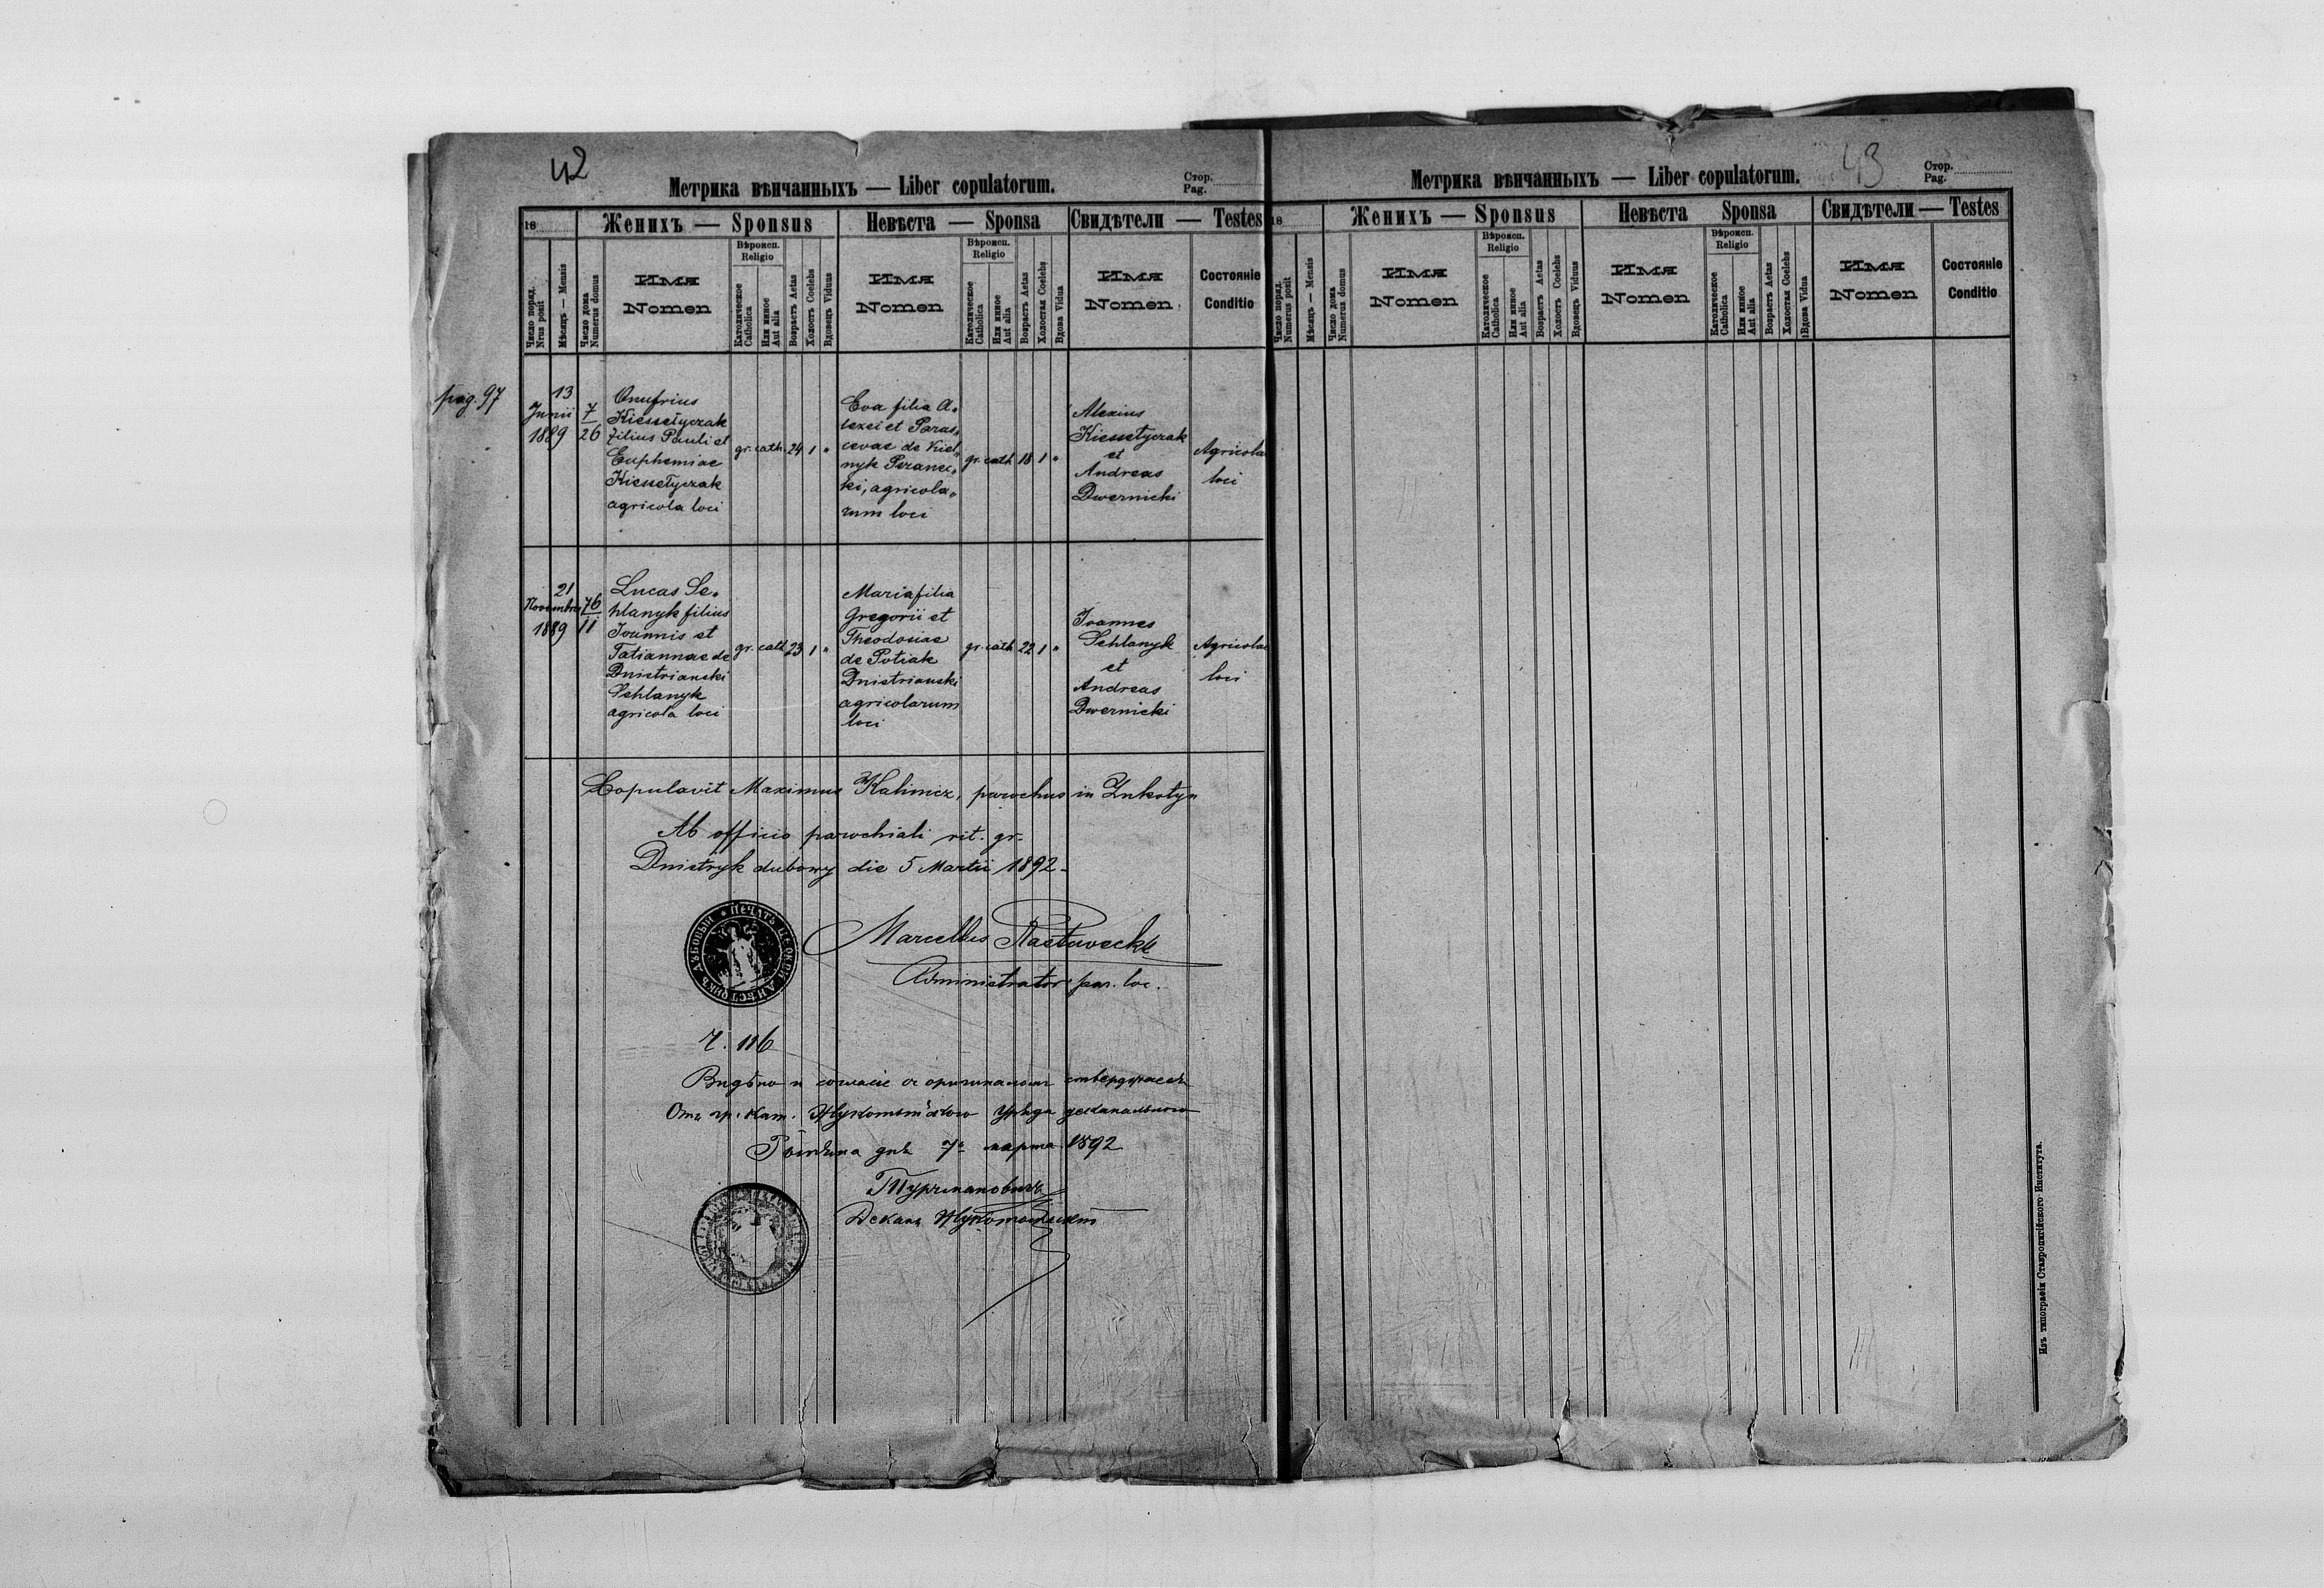 42
Метрика вѣнчанныхъ — Liber copulatorum.
Стор.
Pag.
18
Женихъ — Sponsus
Невѣста — Sponsa
Свидѣтели — Testes
Число поряд.
Nrus posit
Мѣсяць — Mensis
Число дома
Numerus domus
Имя
Nomen
Вѣроисп.
Religio
Католическое
Catholica
Или инное
Aut alia
Возрастъ Aetas
Холостъ Coelebs
Вдовецъ Viduus
Имя
Nomen
Вѣроисп.
Religio
Католическое
Catholica
Или инное
Aut alia
Возрастъ Aetas
Холостая Coelebs
Вдова Vidua
Имя
Nomen
Состояніе
Conditio
pag. 97
13
Junii
1889
7
26
Onufrius
Kiessetyczak
filius Pauli et
Euphemiae
Kiessetyczak
agricola loci
gr. cath. 24 1 "
Eva filia A-
lexei et Paras-
cevae de Kiel-
nyk
ki, agricola-
rum loci
gr. cath 18 1 "
Alexius
Kiessetyczak
et
Andreas
Dwernicki
Agricolae
loci
21
Novembris
1889
76
11
Lucas Se-
hlanyk filius
Joannis et
Tatiannae de
Dnistrianski
Sehlanyk
agricola loci
gr. cath 23 1 "
Maria filia
Gregorii et
Theodosiae
de Potiak
Dnistrianski
agricolarum
loci
gr. cath 22 1 "
Joannes
Sehlanyk
et
Andreas
Dwernicki
Agricolae
loci
Copulavit Maximus Kalinicz, parochus in Zukotyn
Ab officio parochiali rit. gr.
Dnistryk dubowy die 5 Martii 1892
Marcellus
Administrator par. loc.
Ч. 116
Видѣно и согласіе съ оригиналомъ
Отъ гр. кат. Жукотынского Уряда деканального
дня 7. марта 1892
Турчмановичъ
Деканъ
43
Метрика вѣнчанныхъ — Liber copulatorum.
Стор.
Pag.
18
Женихъ — Sponsus
Невѣста Sponsa
Свидѣтели — Testes
Число поряд.
Numerus posit
Мѣсяць — Mensis
Число дома
Numerus domus
Имя
Nomen
Вѣроисп.
Religio
Католическое
Catholica
Или инное
Aut alia
Возрастъ Aetas
Холостъ Coelebs
Вдовецъ Viduus
Имя
Nomen
Вѣроисп.
Religio
Католическое
Catholica
Или инное
Aut alia
Возрастъ Aetas
Холостая Coelebs
Вдова Vidua
Имя
Nomen
Состояніе
Conditio
Изъ типографіи Ставропигійского Института.